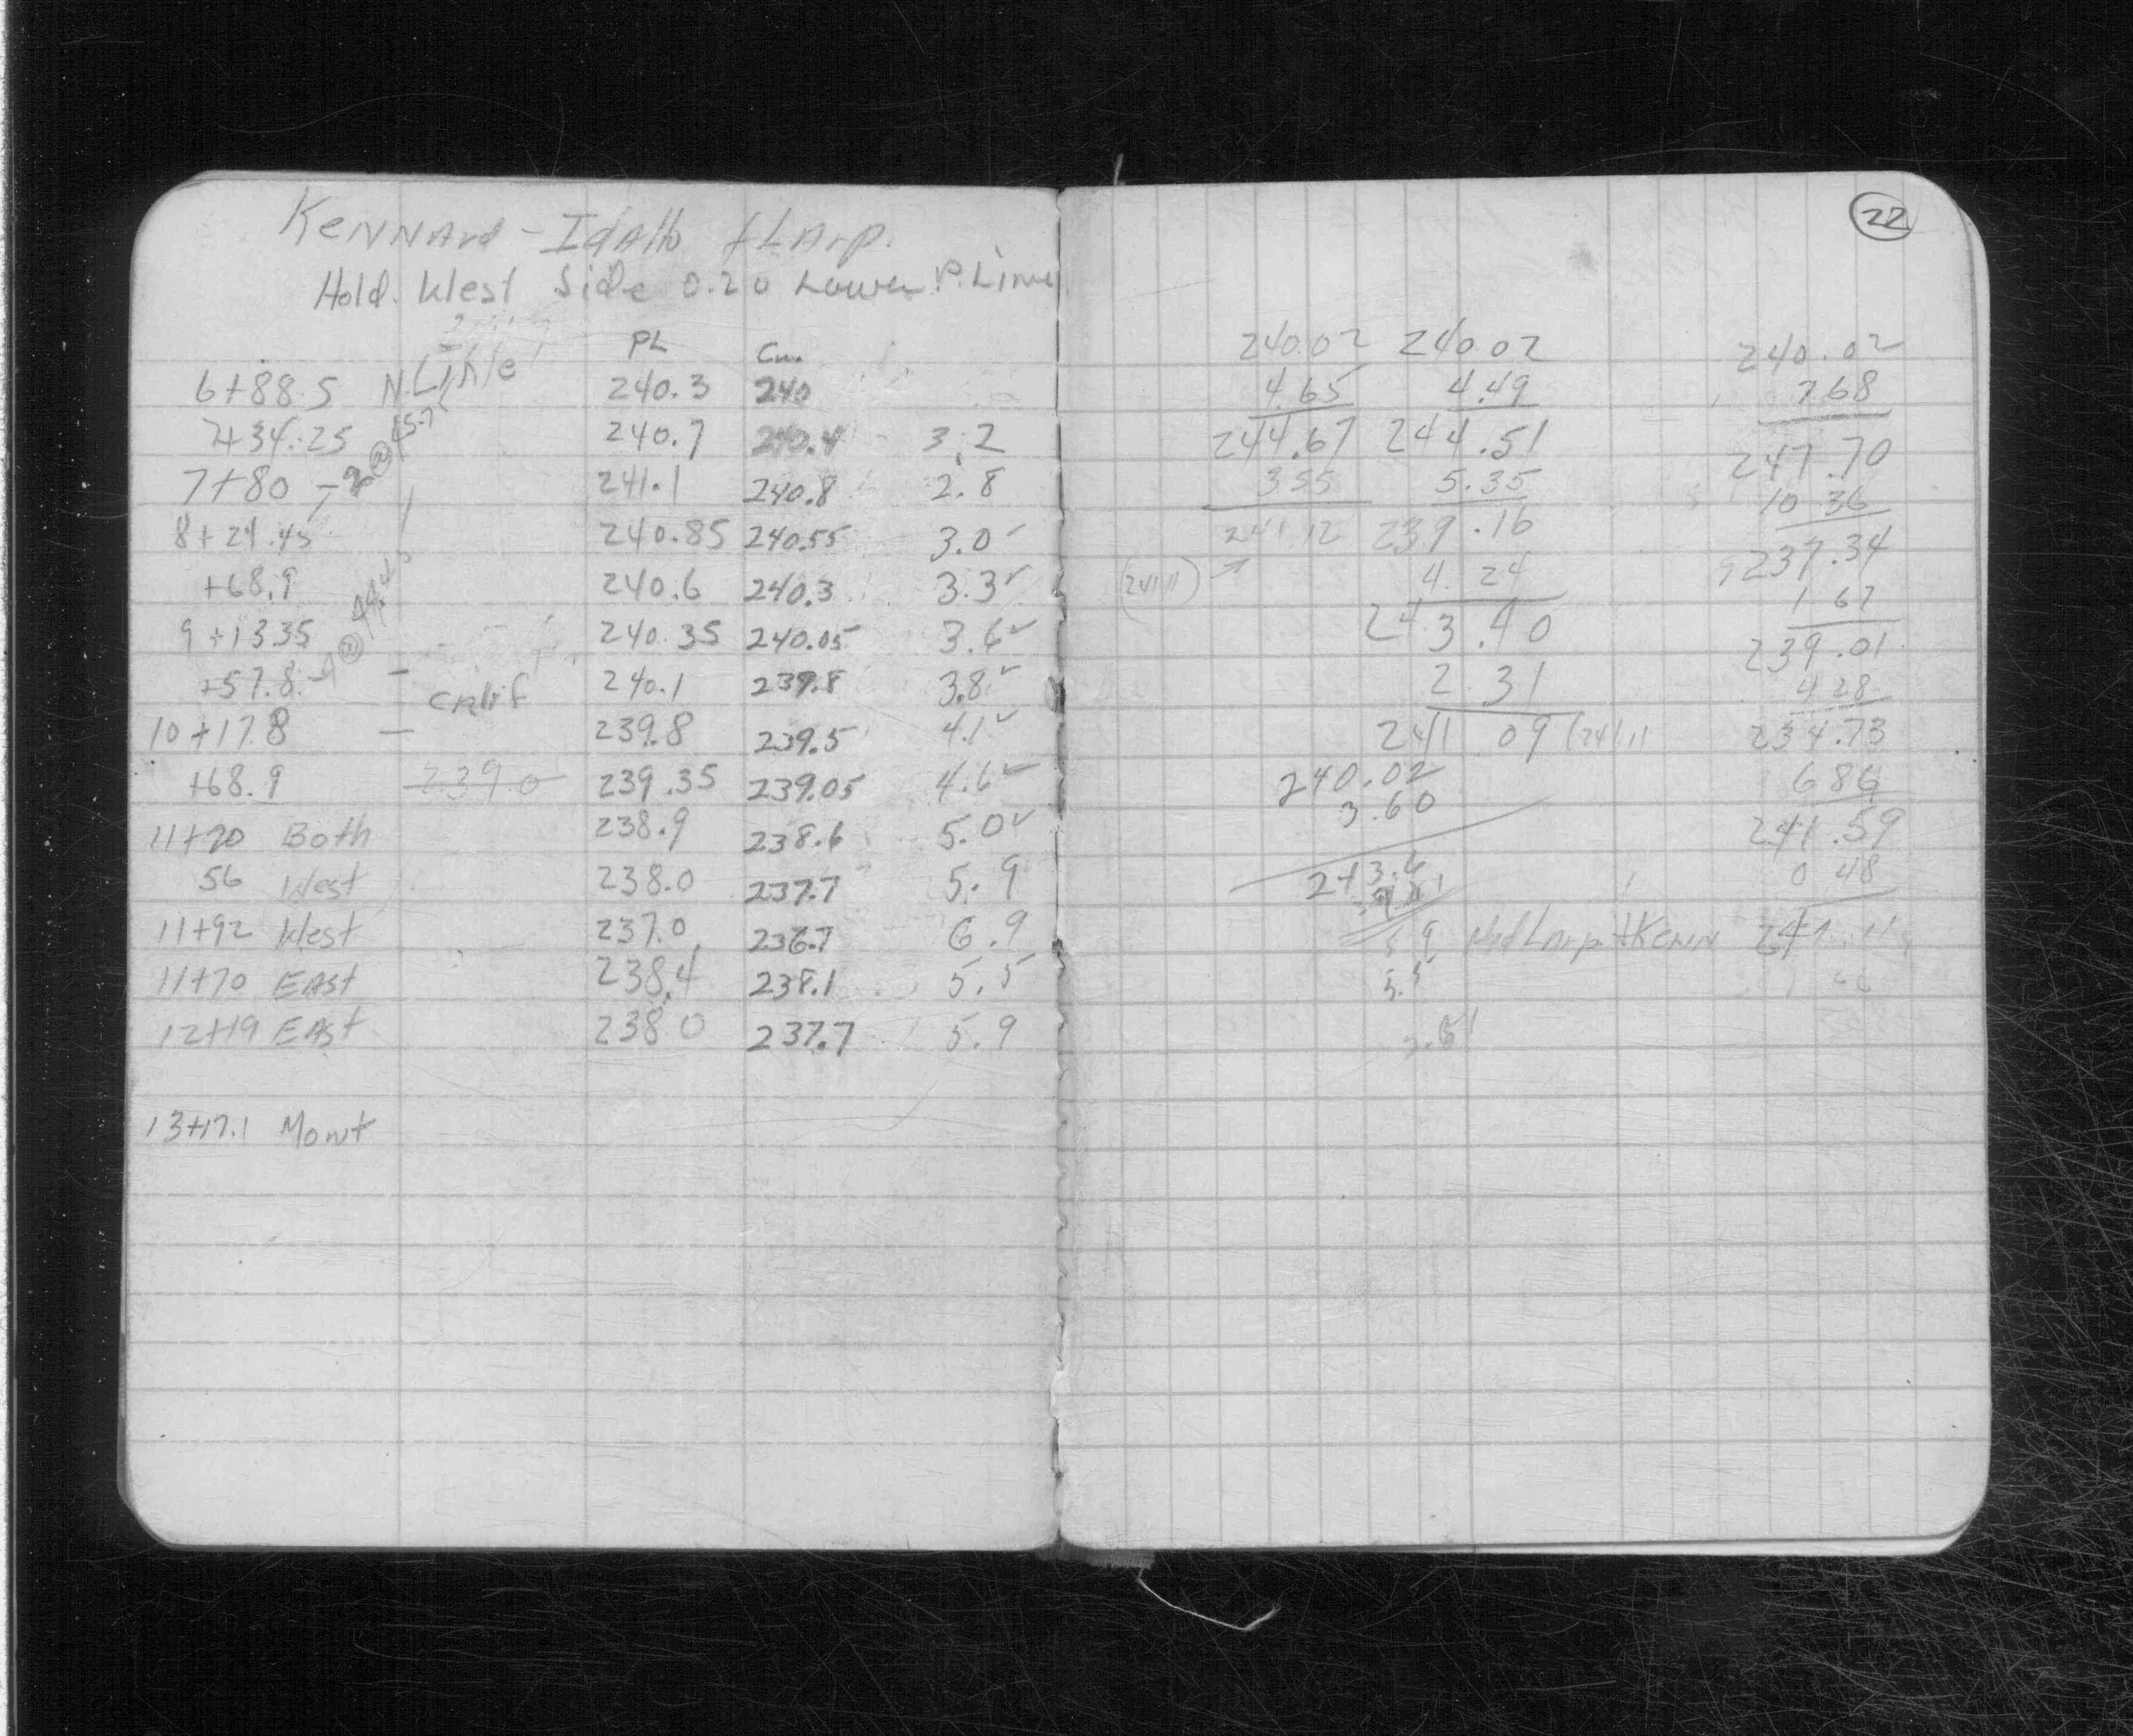 KENNArd - IdAHo & LArp.
Hold. West Side 0.20 Lower P. Line
PL Cu.
6+88.5 N. Line 240.3 240
7+34.25 240.7 240.4 3.2
7+80 - 2 @ 45.7 241.1 240.8 2.8
8+24.45 240.85 240.55 3.0 ✓
+68.9 240.6 240.3 3.3 ✓
9+13.35 240.35 240.05 3.6 ✓
+57.8 - 4 @ 44.45 - Calif 240.1 239.8 3.8 ✓
10+17.8 - 239.8 239.5 4.1 ✓
+68.9 239.0 239.35 239.05 4.6 ✓
11+20 Both 238.9 238.6 5.0 ✓
56 West 238.0 237.7 5.9
11+92 West 237.0 236.7 6.9
11+70 EAst 238.4 238.1 5.5
12+19 EAst 238.0 237.7 5.9
13+17.1 Mont
22
240.02 240.02 240.02
4.65 4.49 7.68
244.67 244.51 247.70
3.55 5.35 10.36
241.12 239.16 237.34
(241.11) 4.24 1.67
243.40 239.01
2.31 4.28
241.09 (241.11 234.73
240.02 6.86
3.60 241.59
243.6 0.48
5.9 LArp + KENN 241.11
5.5